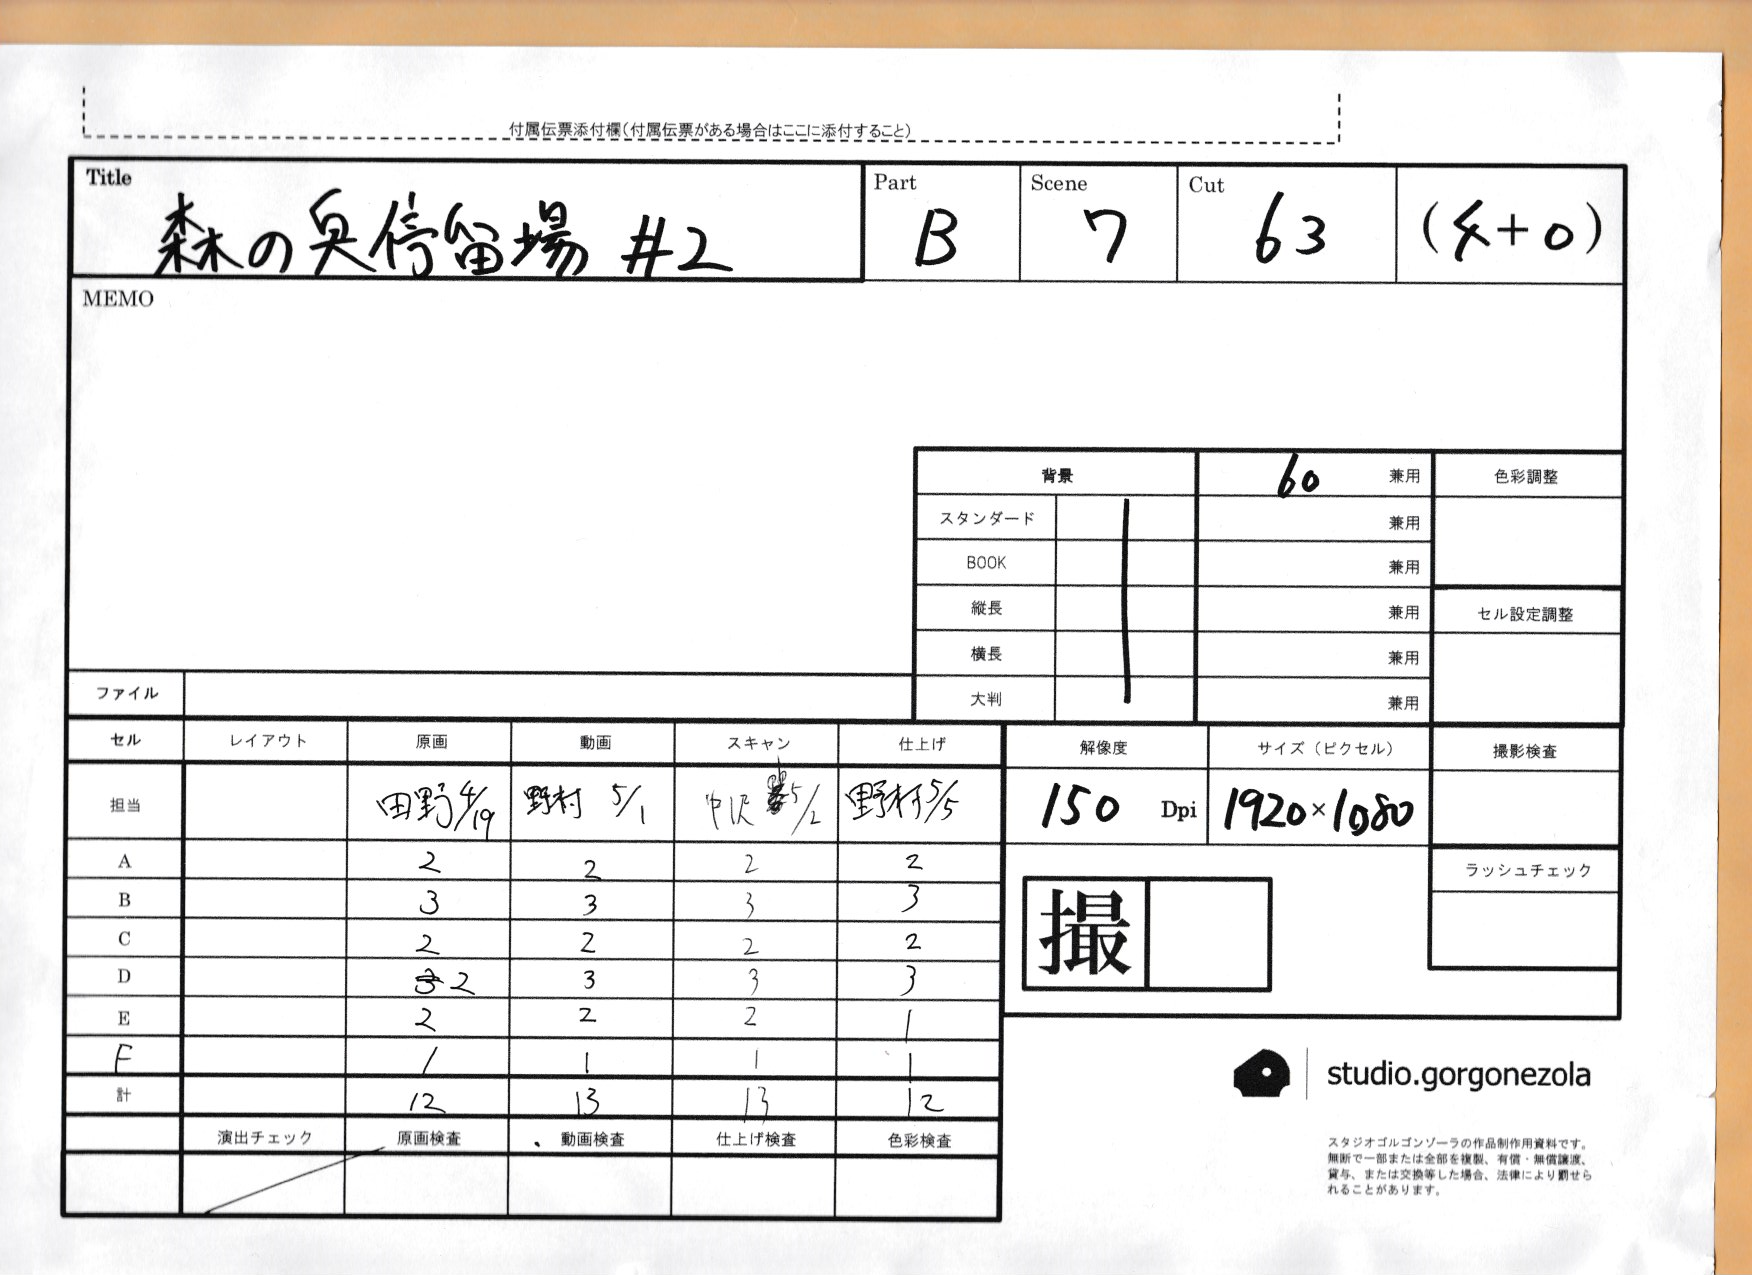 付属伝票添付欄（付属伝票がある場合はここに添付すること）
Title
森の奥停留場 #2
Part
B
Scene
7
Cut
63
(4+0)
MEMO
背景 60 兼用
スタンダード 兼用
BOOK 兼用
縦長 兼用
横長 兼用
大判 兼用
色彩調整
セル設定調整
ファイル
セル レイアウト 原画 動画 スキャン 仕上げ
担当 田野 4/19 野村 5/1 中沢 5/2 野村 5/5
A 2 2 2 2
B 3 3 3 3
C 2 2 2 2
D 3 2 3 3 3
E 2 2 2 1
F 1 1 1 1
計 12 13 13 12
演出チェック 原画検査 動画検査 仕上げ検査 色彩検査
解像度 サイズ（ピクセル） 撮影検査
150 Dpi 1920×1080
ラッシュチェック
撮
studio.gorgonezola
スタジオゴルゴンゾーラの作品制作用資料です。
無断で一部または全部を複製、有償・無償譲渡、
貸与、または交換等した場合、法律により罰せら
れることがあります。